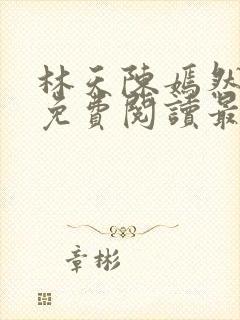 林天陳嫣然
免費閱讀最
章彬